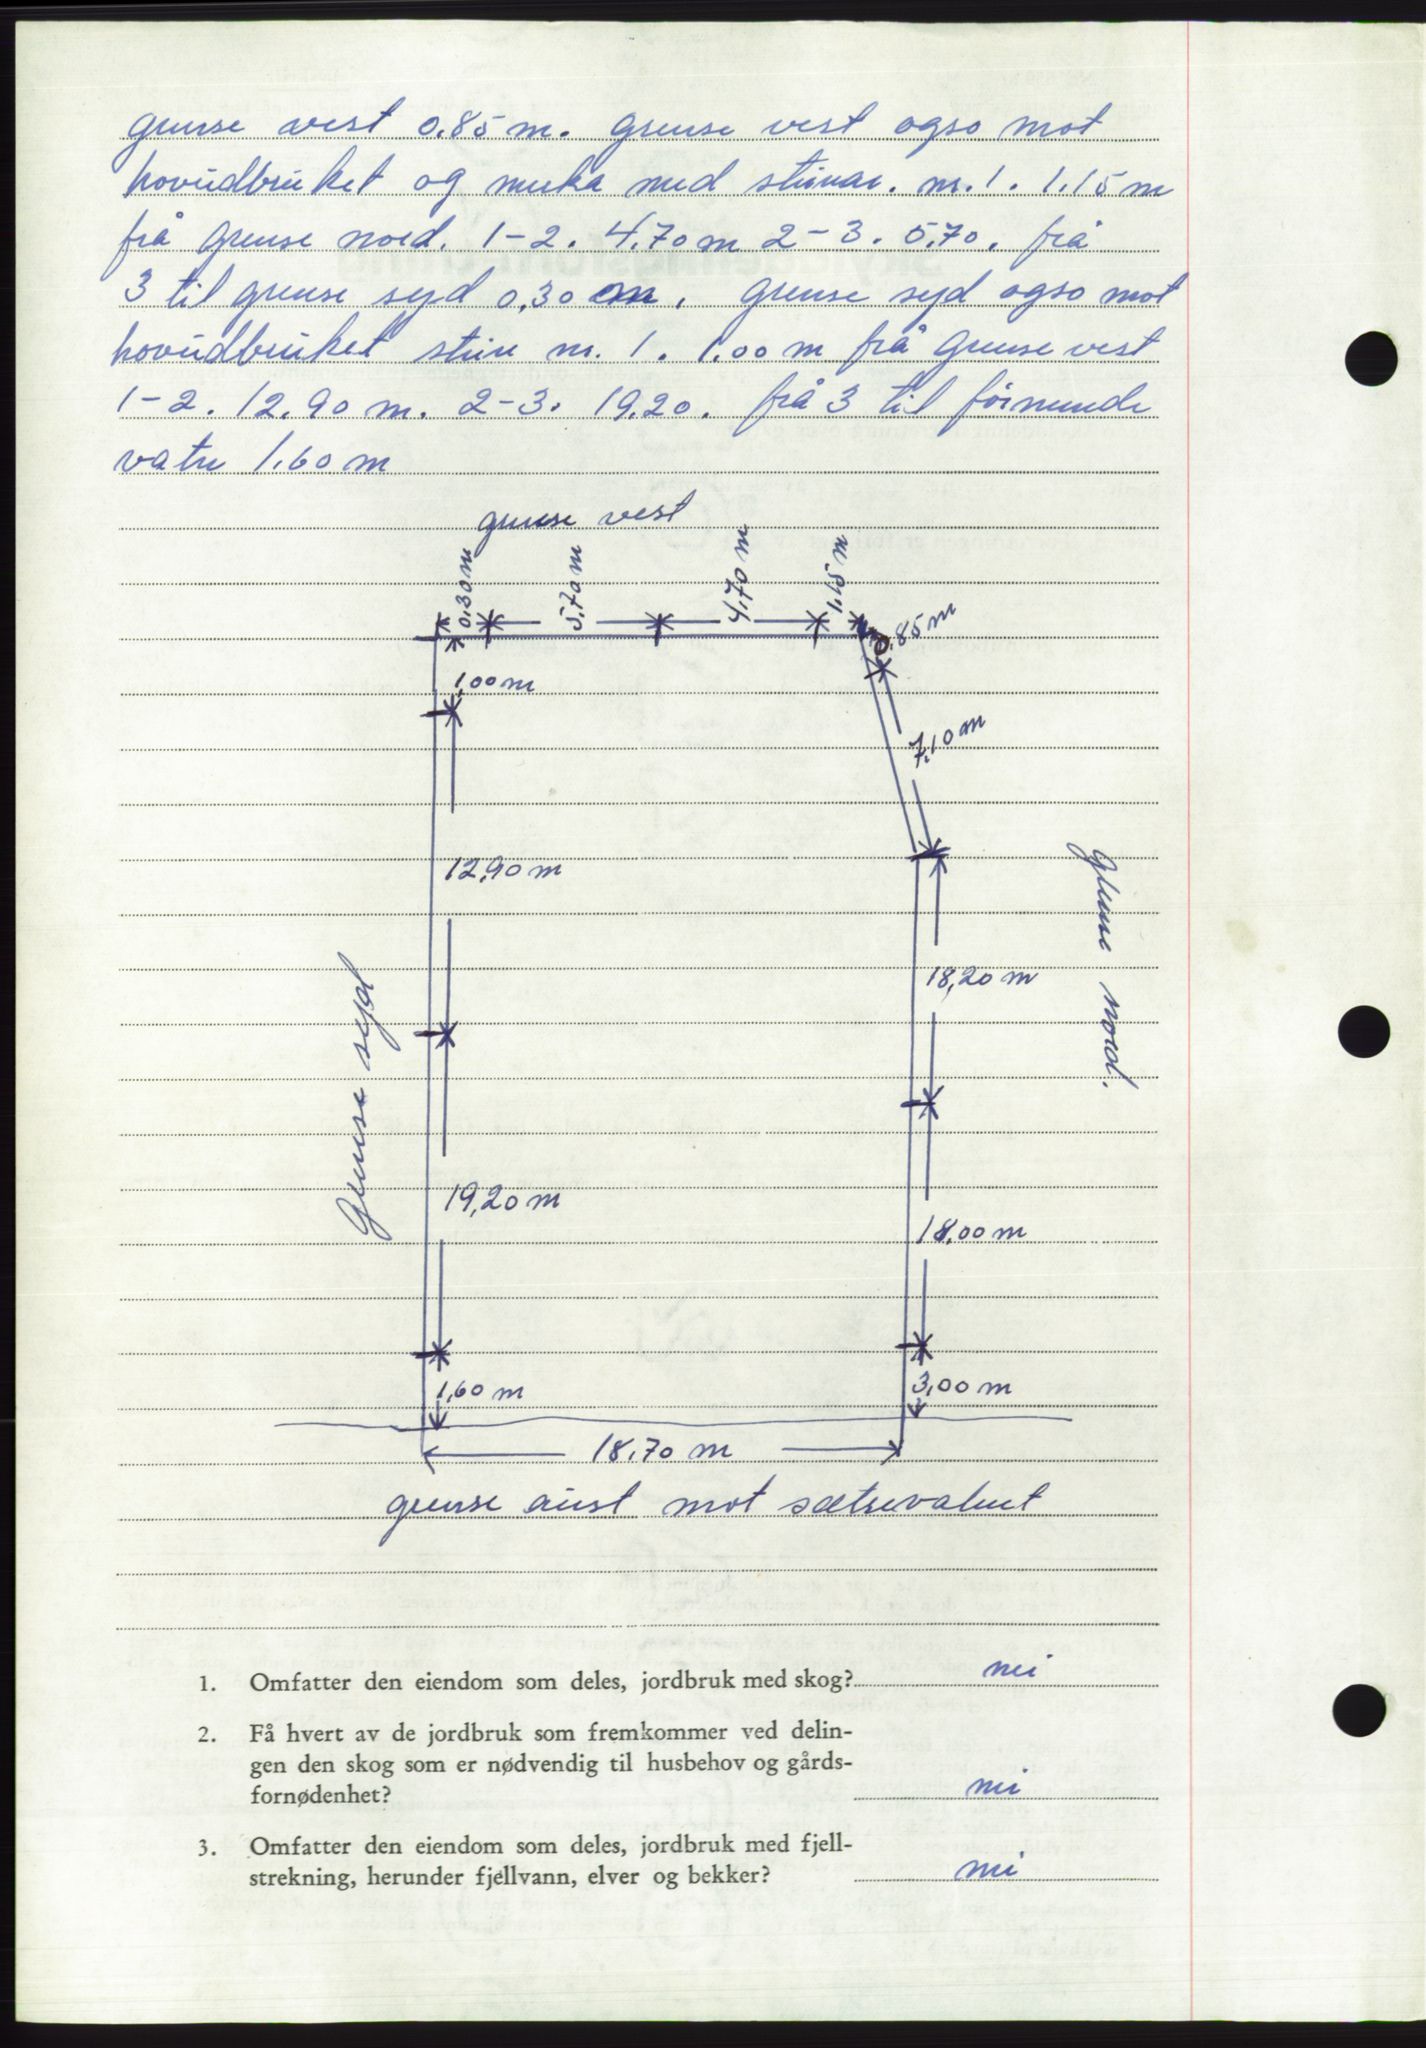 grense vest 0.85 m. grense vest ogso mot
hovudbruket og merka med steinar. nr. 1. 1.15 m
frå grense nord. 1-2. 4.70 m 2-3. 5.70. frå
3 til grense syd 0.30 m. grense syd ogso mot
hovudbruket stein nr. 1. 1.00 m frå grense vest
1-2. 12.90 m. 2-3. 19.20. frå 3 til
vatn 1.60 m
grense vest
0.30 m
5.70 m
4.70 m
1.15 m
0.85 m
1,00 m
7,10 m
12,90 m
18,20 m
grense nord.
Grense syd
19,20 m
18,00 m
1,60 m
3,00 m
18,70 m
grense aust mot sætrevatnet
1. Omfatter den eiendom som deles, jordbruk med skog? nei
2. Få hvert av de jordbruk som fremkommer ved delin-
gen den skog som er nødvendig til husbehov og gårds-
fornødenhet? nei
3. Omfatter den eiendom som deles, jordbruk med fjell-
strekning, herunder fjellvann, elver og bekker? nei